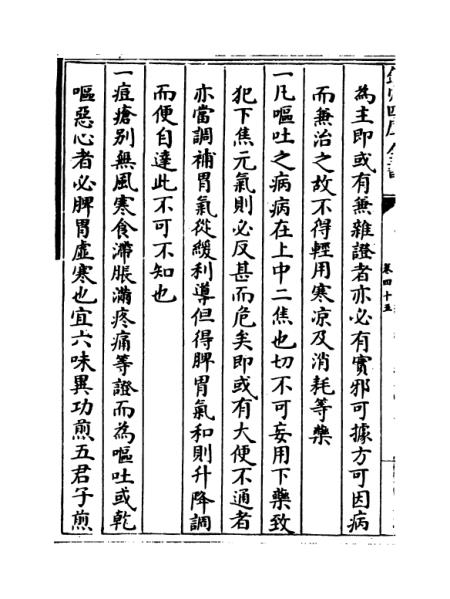 欽定四庫全書
卷四十五
為主即或有兼雜證者亦必有實邪可據方可因病
而兼治之故不得輕用寒凉及消耗等藥
一凡嘔吐之病病在上中二焦也切不可妄用下藥致
犯下焦元氣則必反甚而危矣即或有大便不通者
亦當調補胃氣從緩利導但得脾胃氣和則升降調
而便自達此不可不知也
一痘瘡别無風寒食滯脹滿疼痛等證而為嘔吐或乾
嘔惡心者必脾胃虚寒也宜六味異功煎五君子煎